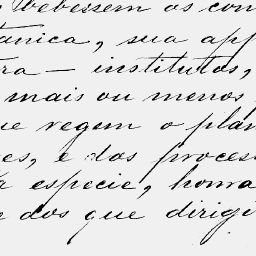 bebessem os con
tanica, sua app
ra — institutos,
mais ou menos
ue regem o plan
es, e dos proces
a especie, honra
e dos que dirigi